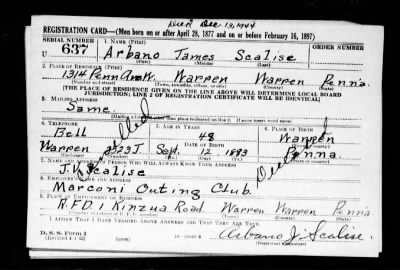 Died Dec. 13, 1944
REGISTRATION CARD—(Men born on or after April 28, 1877 and on or before February 16, 1897)
SERIAL NUMBER 1. NAME (Print) ORDER NUMBER
U 637 Arbano James Scalise
(First) (Middle) (Last)
2. PLACE OF RESIDENCE (Print)
1314 Penn Ave W. Warren Warren Penn'a
[THE PLACE OF RESIDENCE GIVEN ON THE LINE ABOVE WILL DETERMINE LOCAL BOARD
JURISDICTION; LINE 2 OF REGISTRATION CERTIFICATE WILL BE IDENTICAL]
3. MAILING ADDRESS
Same
4. TELEPHONE 5. AGE IN YEARS 6. PLACE OF BIRTH
Bell 48 Warren
DATE OF BIRTH
Warren Sept. 12 1893 Penna.
Died
7. NAME AND ADDRESS OF PERSON WHO WILL ALWAYS KNOW YOUR ADDRESS
J. V. Scalise
8. EMPLOYER'S NAME AND ADDRESS
Marconi Outing Club
9. PLACE OF EMPLOYMENT OR BUSINESS
R.F.D. 1 Kinzua Road Warren Warren Penna
I AFFIRM THAT I HAVE VERIFIED ABOVE ANSWERS AND THAT THEY ARE TRUE.
D. S. S. Form 1
(Revised 4-1-42)
Arbano J. Scalise